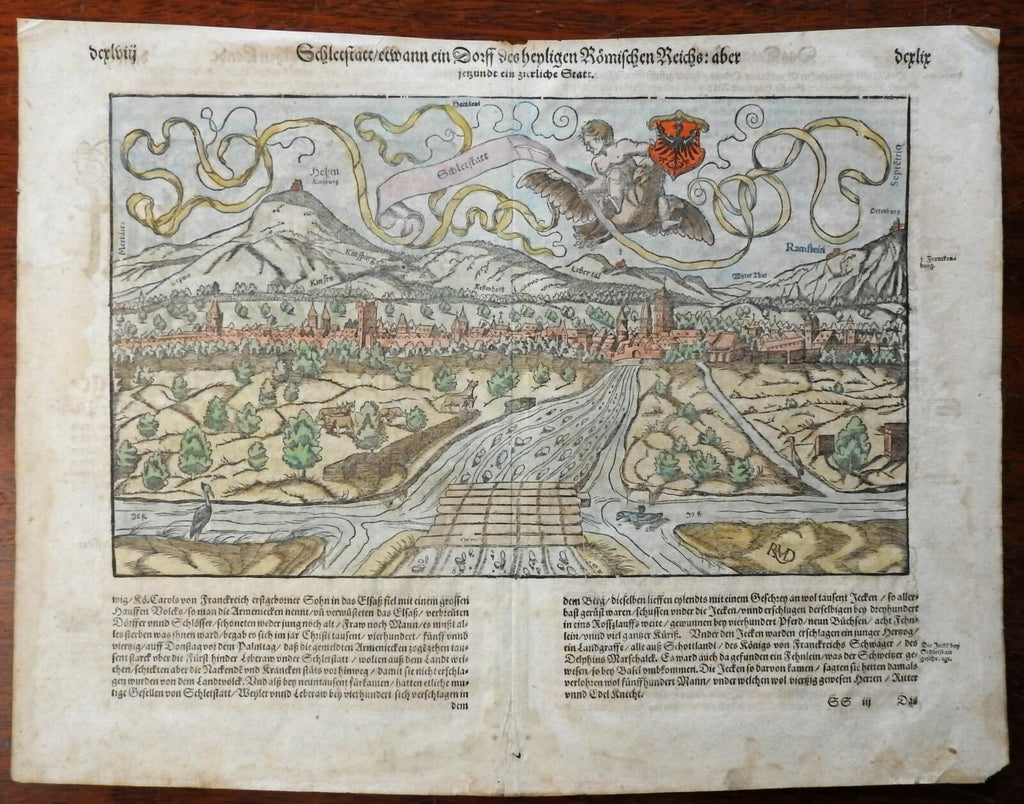 dcxlviij
Schletstatt/etwann ein Dorff des heyligen Römischen Reichs: aber
jetzundt ein zierliche Statt.
dcxlix
Occident
Schletstatt
Hohen
Künsburg
Meridies
Septētrio
Ortenburg
Ramstein
Künsburg
Leber tal
Wyler Thal
Kinssen
Kestenholtz
† Francken-
burg.
Ill fl.
Ill fl.
RMD
wig/Kö. Carols von Franckreich erstgeborner Sohn in das Elsaß fiel mit einem grossen
Hauffen Volcks/so man die Armeniecken nennt/vñ verwüsteten das Elsaß/verbrenten
Dörffer vnnd Schlösser/schoneten weder jung noch alt/Fraw noch Mann/es mußt al-
les sterben was ihnen ward/begab es sich im jar Christi tausent/vierhundert/fünff vnnd
viertzig/auff Donstag vor dem Palmtag/daß die gemeldten Armeniecken zogē zehen tau-
sent starck vber die Fürst hinder Leberaw vnder Schletstatt/wolten auß dem Landt wei-
chen/schickten aber die Nackend vnd Krancken stäts vor hinweg/damit sie nicht erschla-
gen wurden von dem Landvolck. Vnd als bey neuntausent fürkamen/hatten etliche mu-
tige Gesellen von Schletstatt/Weyler vnnd Leberaw bey vierhundert sich verschlagen in
dem
dem Berg/dieselben lieffen eylendts mit einem Geschrey an wol tausent Jecken/so aller-
bast gerüst waren/schussen vnder die Jecken/vnnd erschlugen derselbigen bey dreyhundert
in eins Rosslauffs weite/gewunnen bey vierhundert Pferd/neun Büchsen/acht Fehn-
lein/vnnd viel gantzer Küriß. Vnder den Jecken warden erschlagen ein junger Hertzog/
ein Landgraffe/alle auß Schottlandt/des Königs von Franckreichs Schwäger/des
Delphins Marschalck. Es ward auch da gefunden ein Fehnlein/was der Schweitzer ge-
wesen/so bey Basel vmbkommen. Die Jecken so darvon kamen/sagten sie hetten damals
verlohren wol fünffhundert Mann/vnder welchen wol viertzig gewesen Herren/Ritter
vnnd Edel Knecht/
Die Jecken bey
Schletstatt
geschlagen.
SS iij
Das